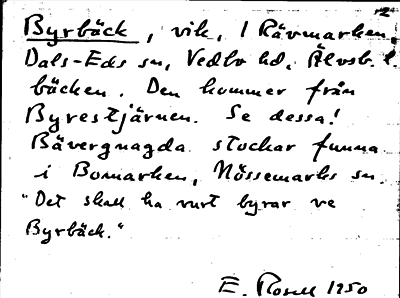 Byrbäck, vik, I Rävmarken,
Dals-Eds sn, Vedbo hd, Älvsb. l.
bäcken. Den kommer från
Byrestjärnen. Se dessa!
Bävergnagda stockar funna
i Bomarken, Nössemarks sn.
"Det skall ha vurt byrar ve
Byrbäck."
E. Rosell 1950